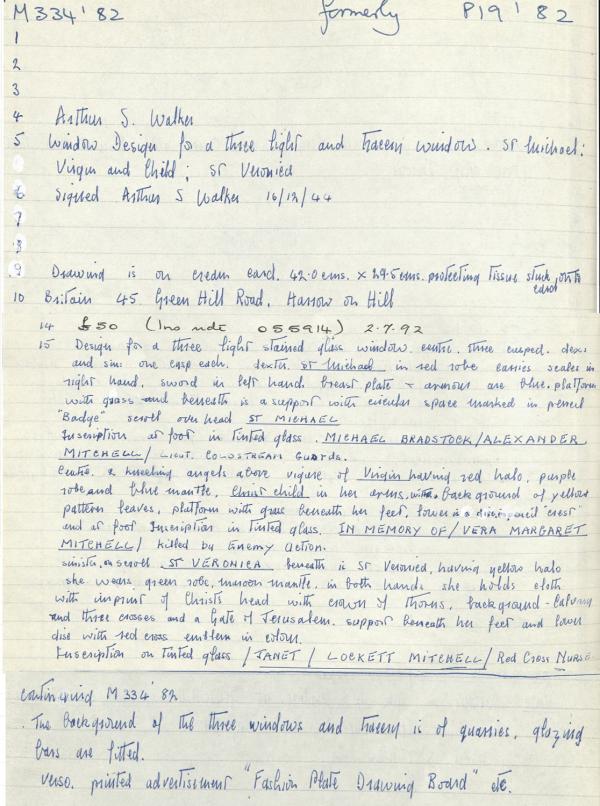 M334'82 formerly P19'82
1
2
3
4 Arthur S. Walker
5 Window Design for a three light and tracery window. St Michael:
Virgin and Child; St Veronica
6 Signed Arthur S Walker 16/12/44
7
8
9 Drawing is on cream card. 42.0 cms. x 29.5 cms. protecting tissue stuck onto
card
10 Britain 45. Green Hill Road, Harrow on Hill
14 £50 (Ins note 055914) 2.7.92
15 Design for a three light stained glass window. centre. three cusped. dexi
and sin: one cusp each. dexter. St Michael in red robe carries scales in
right hand, sword in left hand. breast plate + armour are blue. platform
with grass and beneath is a support with circular space marked in pencil
"Badge" scroll over head ST MICHAEL
Inscription at foot in tinted glass. MICHAEL BRADSTOCK/ALEXANDER
MITCHELL/ LIEUT. COLDSTREAM GUARDS.
Centre. 2 kneeling angels above figure of Virgin having red halo, purple
robe and blue mantle. Christ child in her arms, with background of yellow
pattern leaves, platform with grass beneath her feet, lower is a disc, pencil "crest"
and at foot Inscription in tinted glass. IN MEMORY OF/VERA MARGARET
MITCHELL/ killed by Enemy Action.
sinister, on scroll ST VERONICA beneath is St Veronica, having yellow halo
she wears green robe, maroon mantle. in both hands she holds cloth
with imprint of Christs head with crown of thorns. background - Calvary
and three crosses and a Gate of Jerusalem. support beneath her feet and lower
disc with red cross emblem in colour.
Inscription on tinted glass /JANET/ LOCKETT MITCHELL/ Red Cross Nurse
continuing M334'82
. The background of the three windows and tracery is of quarries, glazing
bars are fitted.
verso. printed advertisement "Fashion Plate Drawing Board" etc.